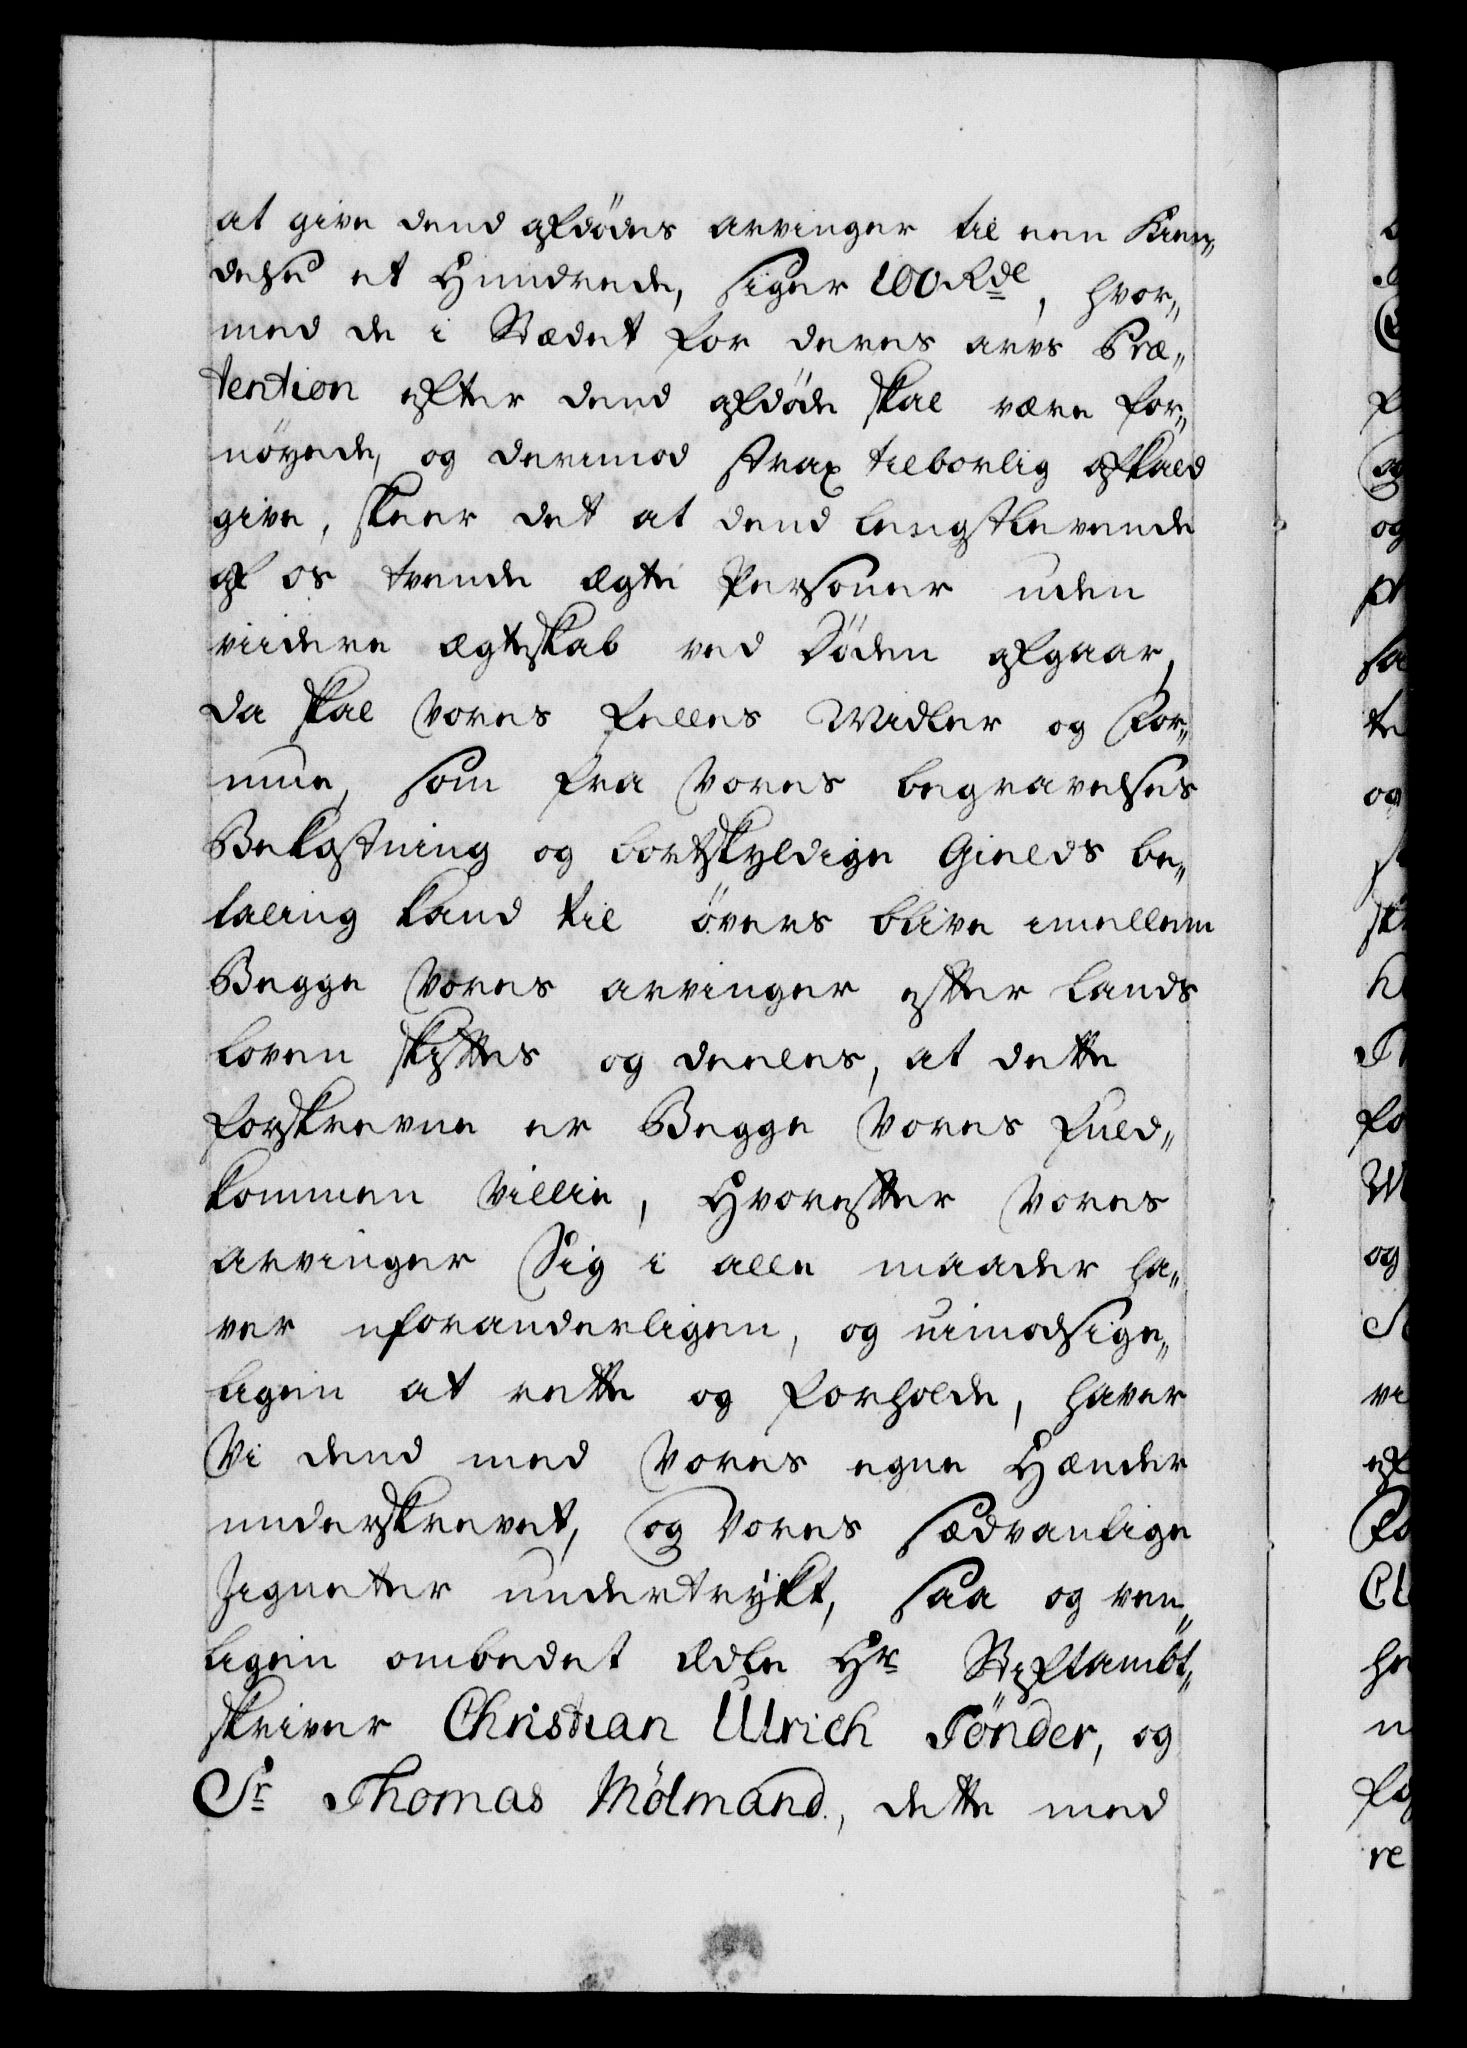 at give dend afdödes arvinger til een Kien„
delse et Hundrede, siger 100 Rdl, hvor„
med de i Stædet for deres arvs Præ„
tention efter dend afdöde skal være for„
nöyede, og derimod strax tilbørlig afkald
give, skeer det at dend lengstlevende
af os tvende ægte Personer uden
viidere ægteskab ved Döden afgaar,
da skal Vores felles Midler og For„
mue, som fra Vores begravelses
Bekostning og bortskyldige Gields be„
taling kand til övers blive imellem
Begge Vores arvinger efter Lands
Loven skiftes og deeles, at dette
forskrevne er Begge Vores fuld„
kommen Villie, Hvorefter Vores
arvinger Sig i alle maader ha„
ver uforanderligen, og uimodsige„
ligen at rette og forholde, haver
Vi dend med Vores egne Hænder
underskrevet, og Vores sædvanlige
Zigneter undertrykt, saa og ven„
ligen ombedet Ædle Hr Stiftambt„
skriver Christian Ulrich Tönder, og
Sr Thomas Mölmand, dette med